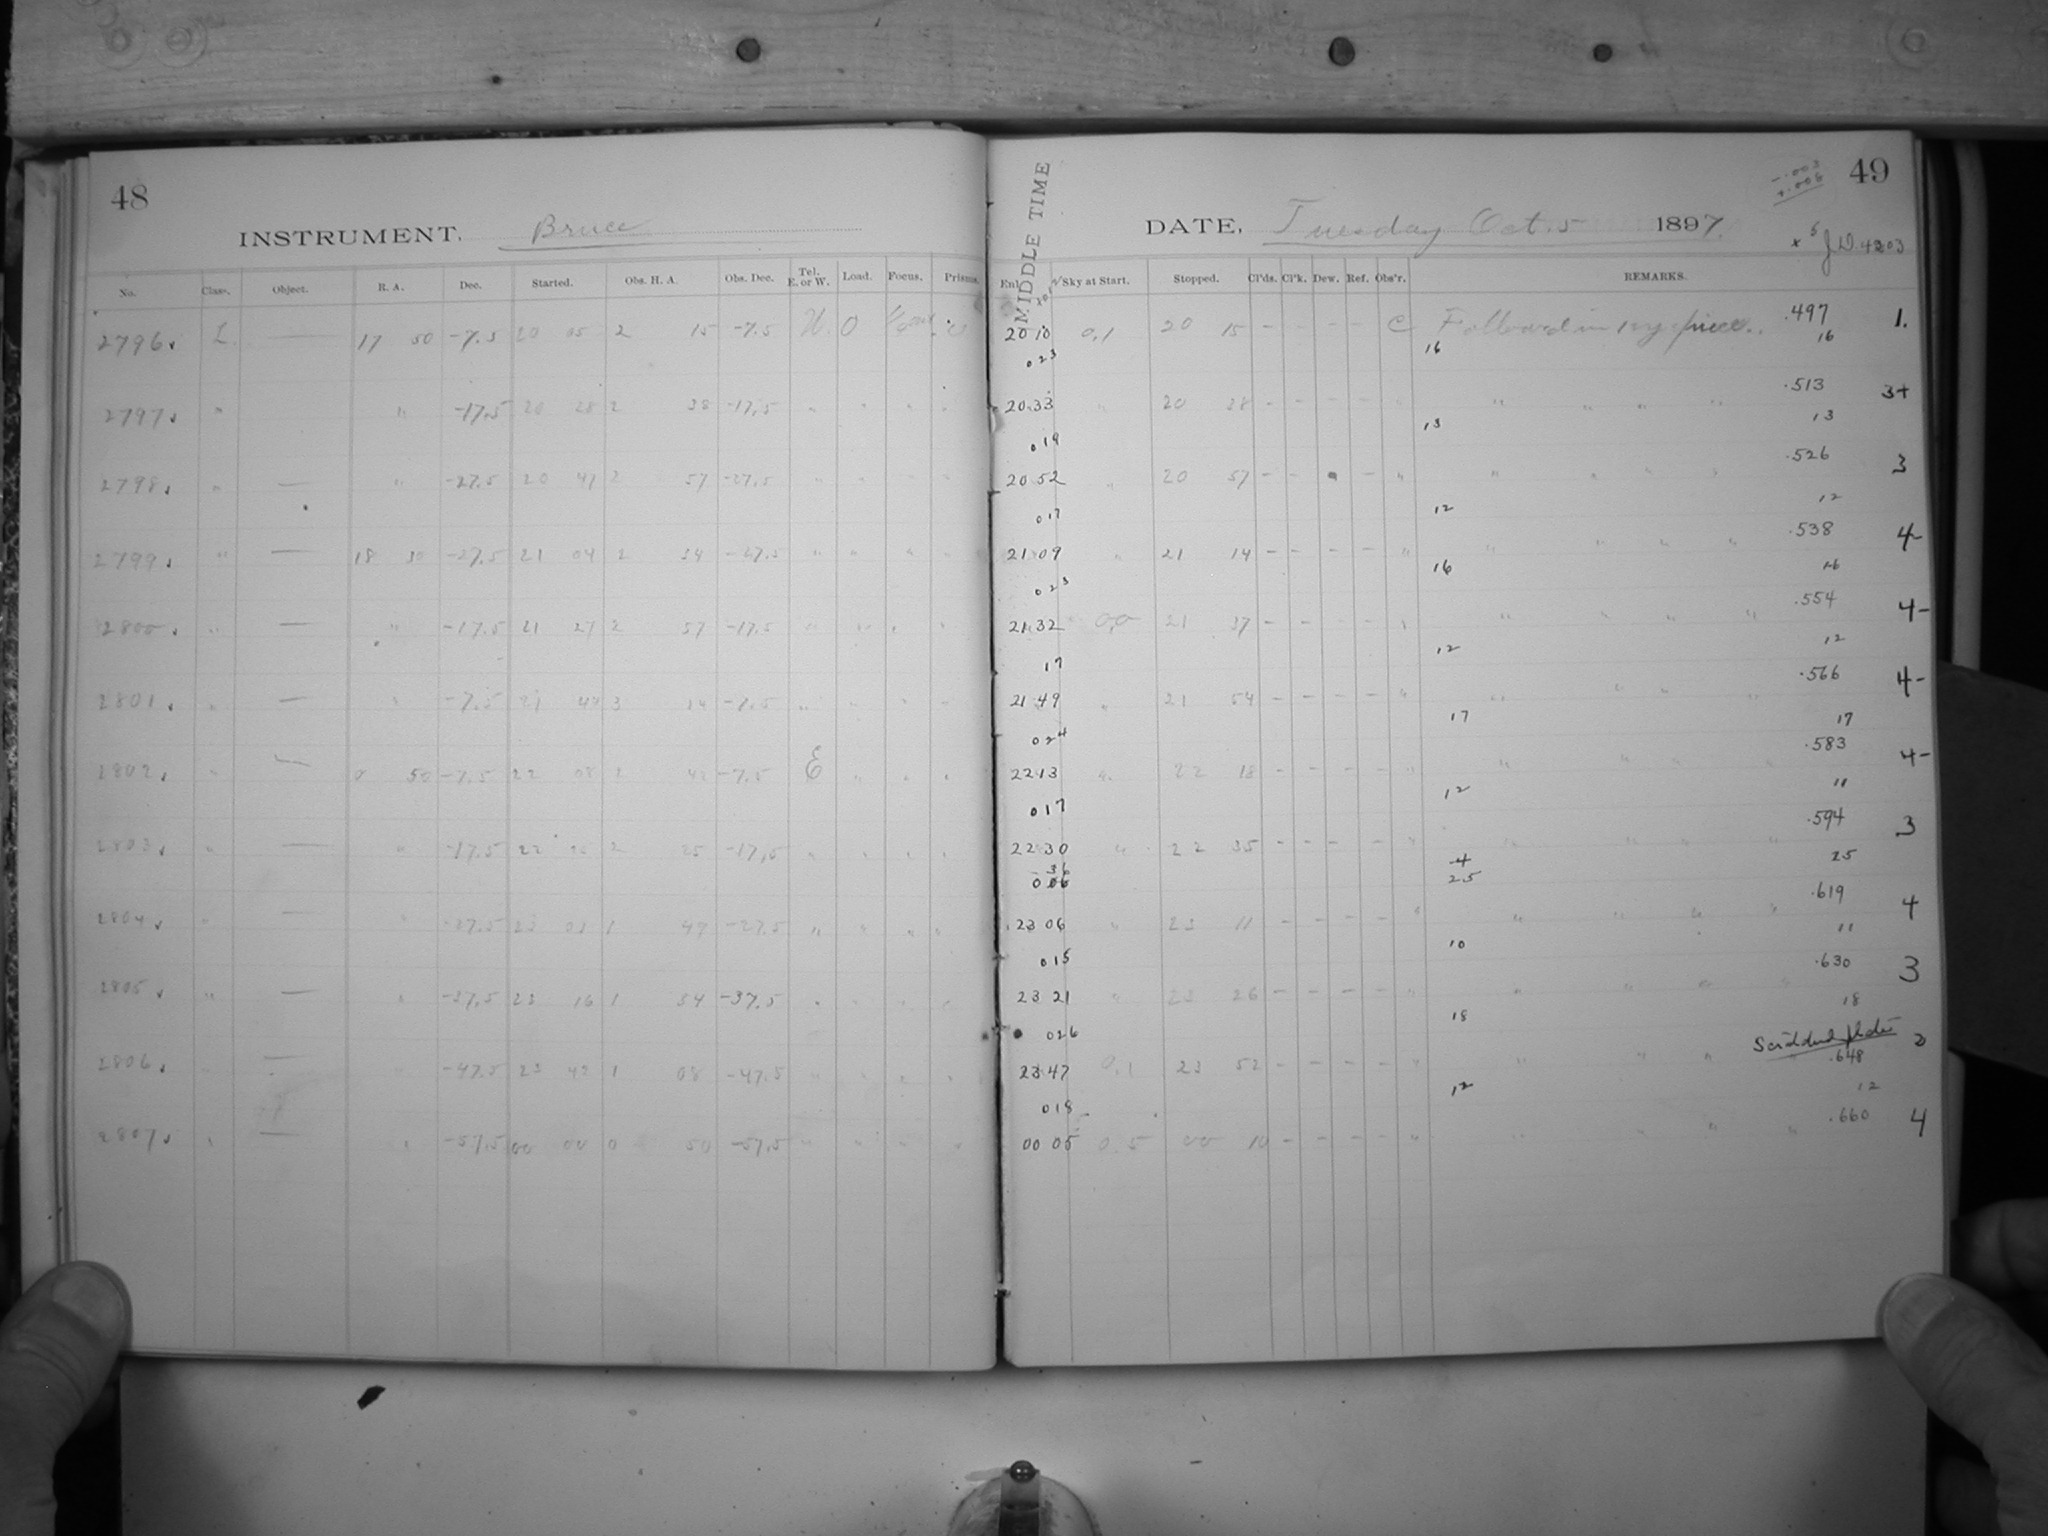 48
INSTRUMENT, Bruce
No. Class. Object. R. A. Dec. Started. Obs. H. A. Obs. Dec. Tel. E. or W. Load. Focus. Prisms.
2796 L — 17 50 -7.5 20 05 2 15 -7.5 W. 0
2797 " " -17.5 20 28 2 38 -17.5 " " " "
2798 " — " -27.5 20 47 2 57 -27.5 " " " "
2799 " — 18 30 -27.5 21 04 2 34 -27.5 " " " "
2800 " — " -17.5 21 27 2 57 -17.5 " " " "
2801 " — " -7.5 21 44 3 14 -7.5 " " " "
2802 " — 0 50 -7.5 22 08 2 42 -7.5 E " " "
2803 " — " -17.5 22 25 2 25 -17.5 " " " "
2804 " — " -27.5 23 01 1 49 -27.5 " " " "
2805 " — " -37.5 23 16 1 34 -37.5 " " " "
2806 " — " -47.5 23 42 1 08 -47.5 " " " "
2807 " — " -57.5 00 00 0 50 -57.5 " " " "
49
-.003
+.008
MIDDLE TIME
DATE, Tuesday Oct. 5 1897.
J.D. 4203
Sky at Start. Stopped. Cl'ds. Cl'k. Dew. Ref. Obs'r. REMARKS.
20 10 0.1 20 15 - - - - C Followed in .497 1.
023 16 16
20 33 " 20 38 - - - - " " " " " .513 3+
019 13 13
20 52 " 20 57 - - - - " " " " " .526 3
017 12 12
21 09 " 21 14 - - - - " " " " " .538 4-
023 16 16
21 32 0.0 21 37 - - - - " " " " " .554 4-
17 12 12
21 49 " 21 54 - - - - " " " " " .566 4-
024 17 17
22 13 " 22 18 - - - - " " " " " .583 4-
017 12 11
22 30 " 22 35 - - - - " " " " " .594 3
36 4 25
25
23 06 " 23 11 - - - - " " " " " .619 4
015 10 11
23 21 " 23 26 - - - - " " " " " .630 3
026 18 18
23 47 0.1 23 52 - - - - " " " " .648 2
018 12 12
00 05 0.5 00 10 - - - - " " " " " .660 4